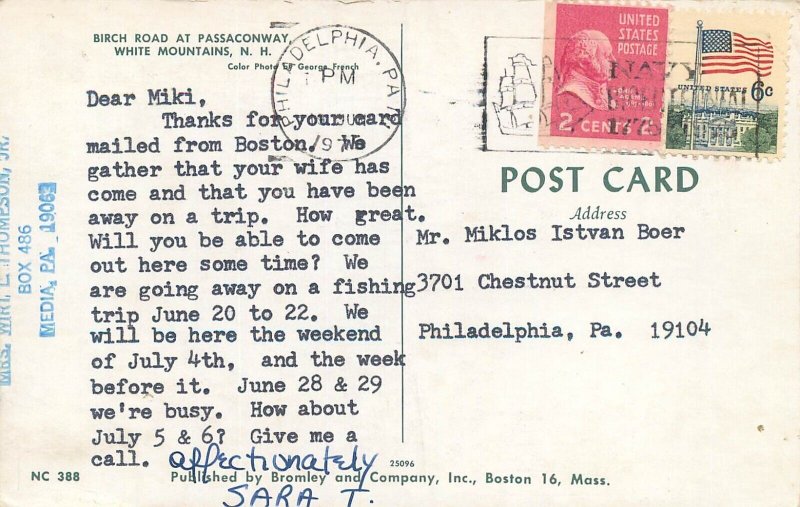 BIRCH ROAD AT PASSACONWAY,
WHITE MOUNTAINS, N. H.
Color Photo by George French
PHILADELPHIA, PA
PM
197
NAVY
UNITED
STATES
POSTAGE
2 CENTS 2
UNITED STATES 6c
POST CARD
Address
Dear Miki,
Thanks for your card
mailed from Boston. We
gather that your wife has
come and that you have been
away on a trip. How great.
Will you be able to come
out here some time? We
are going away on a fishing
trip June 20 to 22. We
will be here the weekend
of July 4th, and the week
before it. June 28 & 29
we're busy. How about
July 5 & 6? Give me a
call. affectionately
SARA T.
Mr. Miklos Istvan Boer
3701 Chestnut Street
Philadelphia, Pa. 19104
MRS. WIRT L. THOMPSON, JR.
BOX 486
MEDIA, PA. 19063
NC 388
25096
Published by Bromley and Company, Inc., Boston 16, Mass.